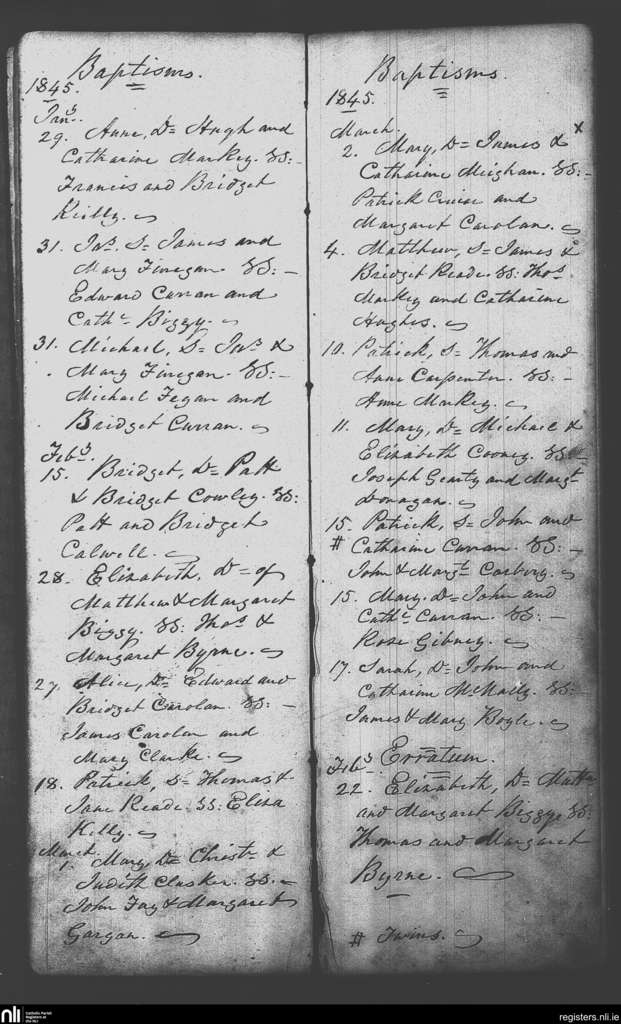 Baptisms.
1845.
Jany.
29. Anne, D= Hugh and
Catharine Markey. SS:-
Francis and Bridget
Keilly.
31. Jas. S= James and
Mary Finegan. SS:-
Edward Curran and
Cathe Biggy.
31. Michael, S= Jas. &
Mary Finegan. SS:-
Michael Fegan and
Bridget Curran.
Feby.
15. Bridget, D= Patt
& Bridget Cowley. SS:
Patt and Bridget
Calwell.
28. Elizabeth, D= of
Matthew & Margaret
Biggy. SS: Thos. &
Margaret Byrne.
27. Alice, D= Edward and
Bridget Carolan. SS:-
James Carolan and
Mary Clarke.
18. Patrick, S= Thomas &
Jane Reade. SS: Eliza
Kelly.
March
1. Mary, D= Christr &
Judith Clusker. SS.-
John Fay & Margaret
Gargan.
Baptisms.
1845.
March.
2. Mary, D= James & x
Catharine Meighan. SS:-
Patrick Cruise and
Margaret Carolan.
4. Matthew, S= James &
Bridget Reade. SS: Thos.
Markey and Catharine
Hughes.
10. Patrick, S= Thomas and
Anne Carpenter. SS:-
Anne Markey.
11. Mary, D= Michael &
Elizabeth Cooney. SS:-
Joseph Gearty and Margt
Donagan.
15. Patrick, S= John and
# Catharine Curran. SS:-
John & Margt Corbery.
15. Mary, D= John and
Cathe Curran. SS:-
Rose Gibney.
17. Sarah, D= John and
Catharine McNally. SS:-
James & Mary Boyle.
Erratum.
Feby.
22. Elizabeth, D= Matthw
and Margaret Biggy. SS:
Thomas and Margaret
Byrne.
# Twins.
nli Catholic Parish Registers at the NLI
registers.nli.ie